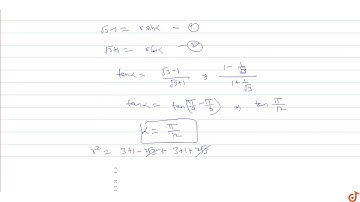 √3-1 = r sinα – ①
√3+1 = r cosα – ②
tanα = (√3-1)/(√3+1) ⇒ (1 - 1/√3)/(1 + 1/√3)
tanα = tan(π/4 - π/6) ⇒ tan π/12
α = π/12
r² = 3+1-2√3 + 3+1+2√3